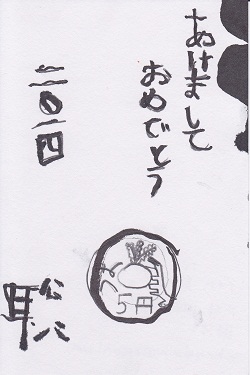 あけまして
おめでとう
二〇一四
5円
聡